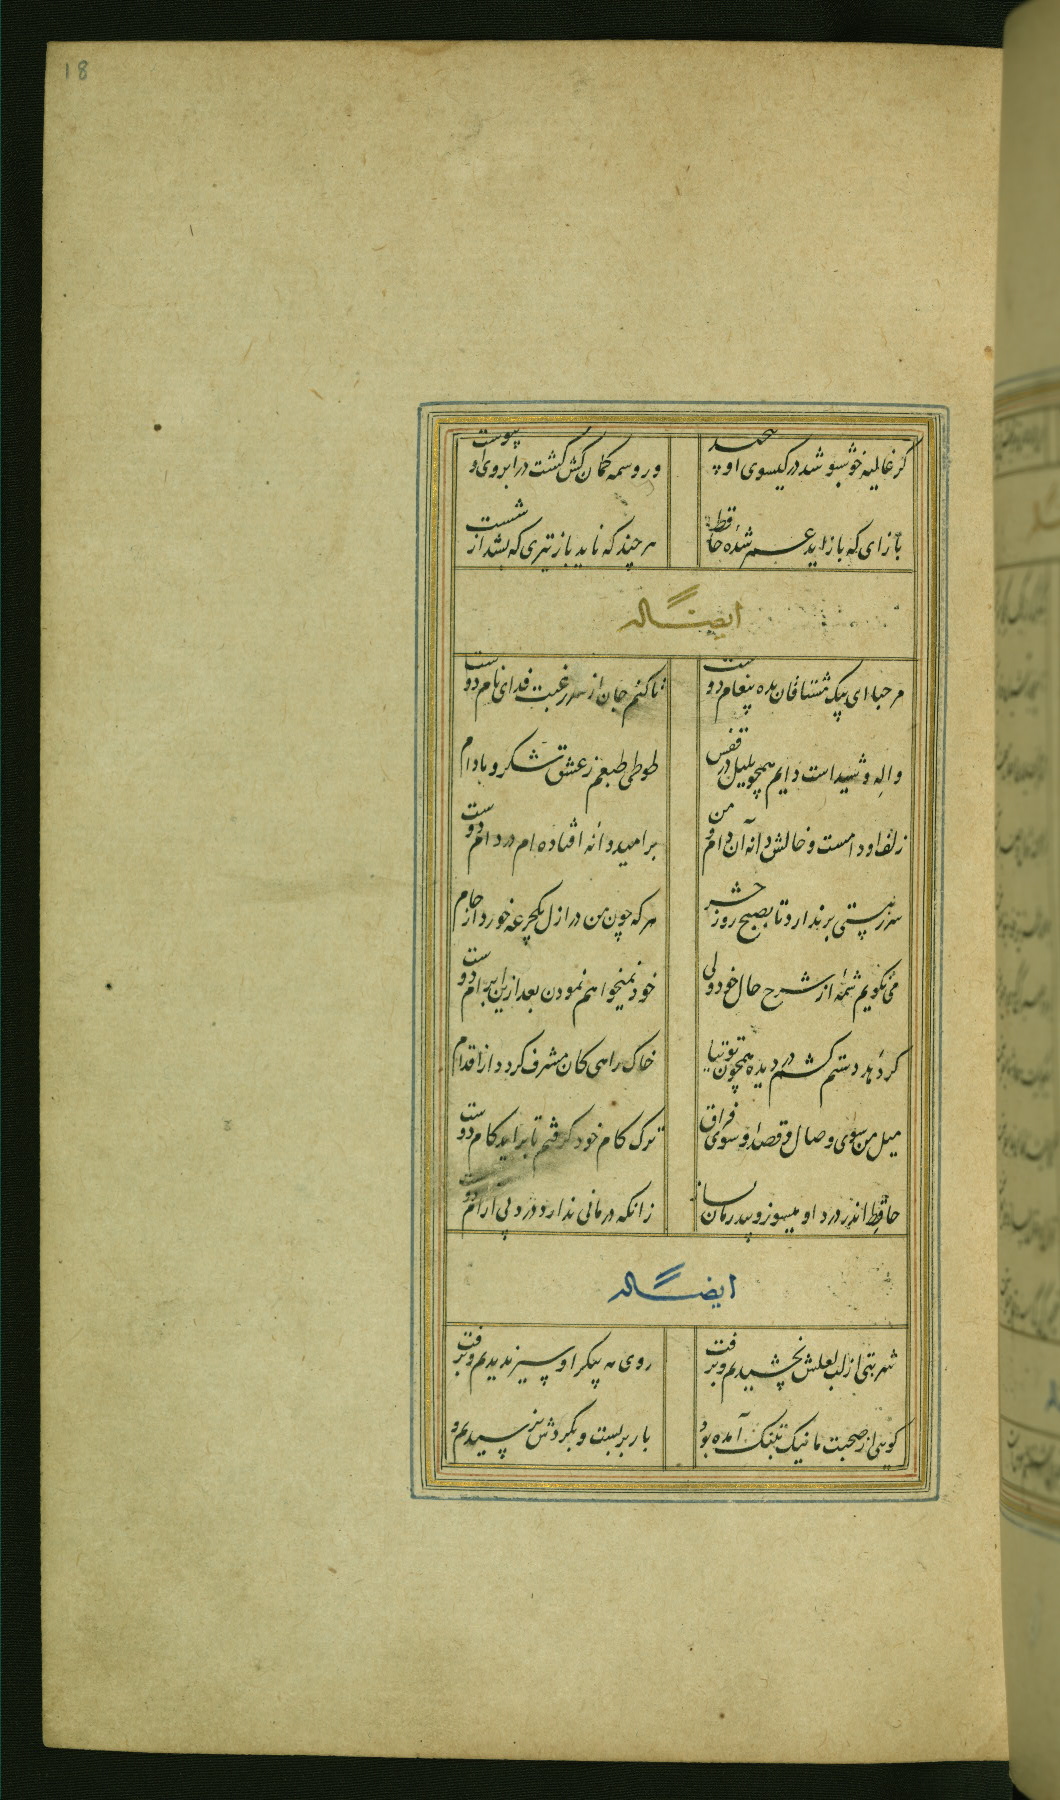 18
کر غالیه خوشبو شد در کیسوی او پیچید
ور وسمه کمان کش کشت در ابروی او پیوست
بازای که باز اید عمر شده حافظ
هر چند که ناید باز تیری که بشد از شست
ایضا له
مرحبا ای پیک مشتاقان بده پیغام دوست
تا کنم جان از سر رغبت فدای نام دوست
واله و شیداست دایم همچو بلبل در قفس
طوطی طبعم ز عشق شکر و بادام
زلف او دامست و خالش دانه آن دام و من
بر امید دانه افتاده ام در دام دوست
سر ز مستی بر ندارد تا بصبح روز حشر
هر که چون من در ازل یکجرعه خورد از جام
می نکویم شمهٔ از شرح حال خود ولی
خود نمیخواهم نمودن بعد ازین ابرام دوست
کر دهد دستم کشم در دیده همچون توتیا
خاک راهی کان مشرف کردد از اقدام
میل من سوی وصال و قصد او سوی فراق
ترک کام خود کرفتم تا براید کام دوست
حافظ اندر درد او میسوز و بیدرمان بساز
زانکه درمانی ندارد درد بی ارام دوست
ایضا له
شربتی از لب لعلش نچشیدیم و برفت
روی مه پیکر او سیر ندیدیم و برفت
کویی از صحبت ما نیک بتنک آمده بود
بار بربست و بکردش نرسیدیم و